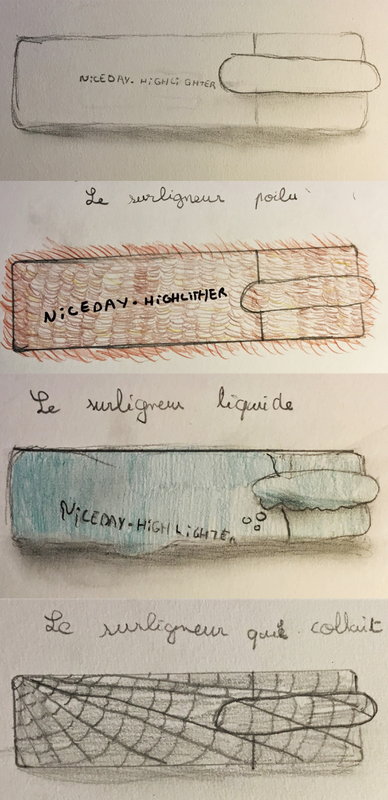 NiCEDAY. HIGHLiGHTER
Le surligneur poilu
NiCEDAY. HiGHLiTHER
Le surligneur liquide
NiCEDAY. HIGH LiGHTER
Le surligneur qui collait